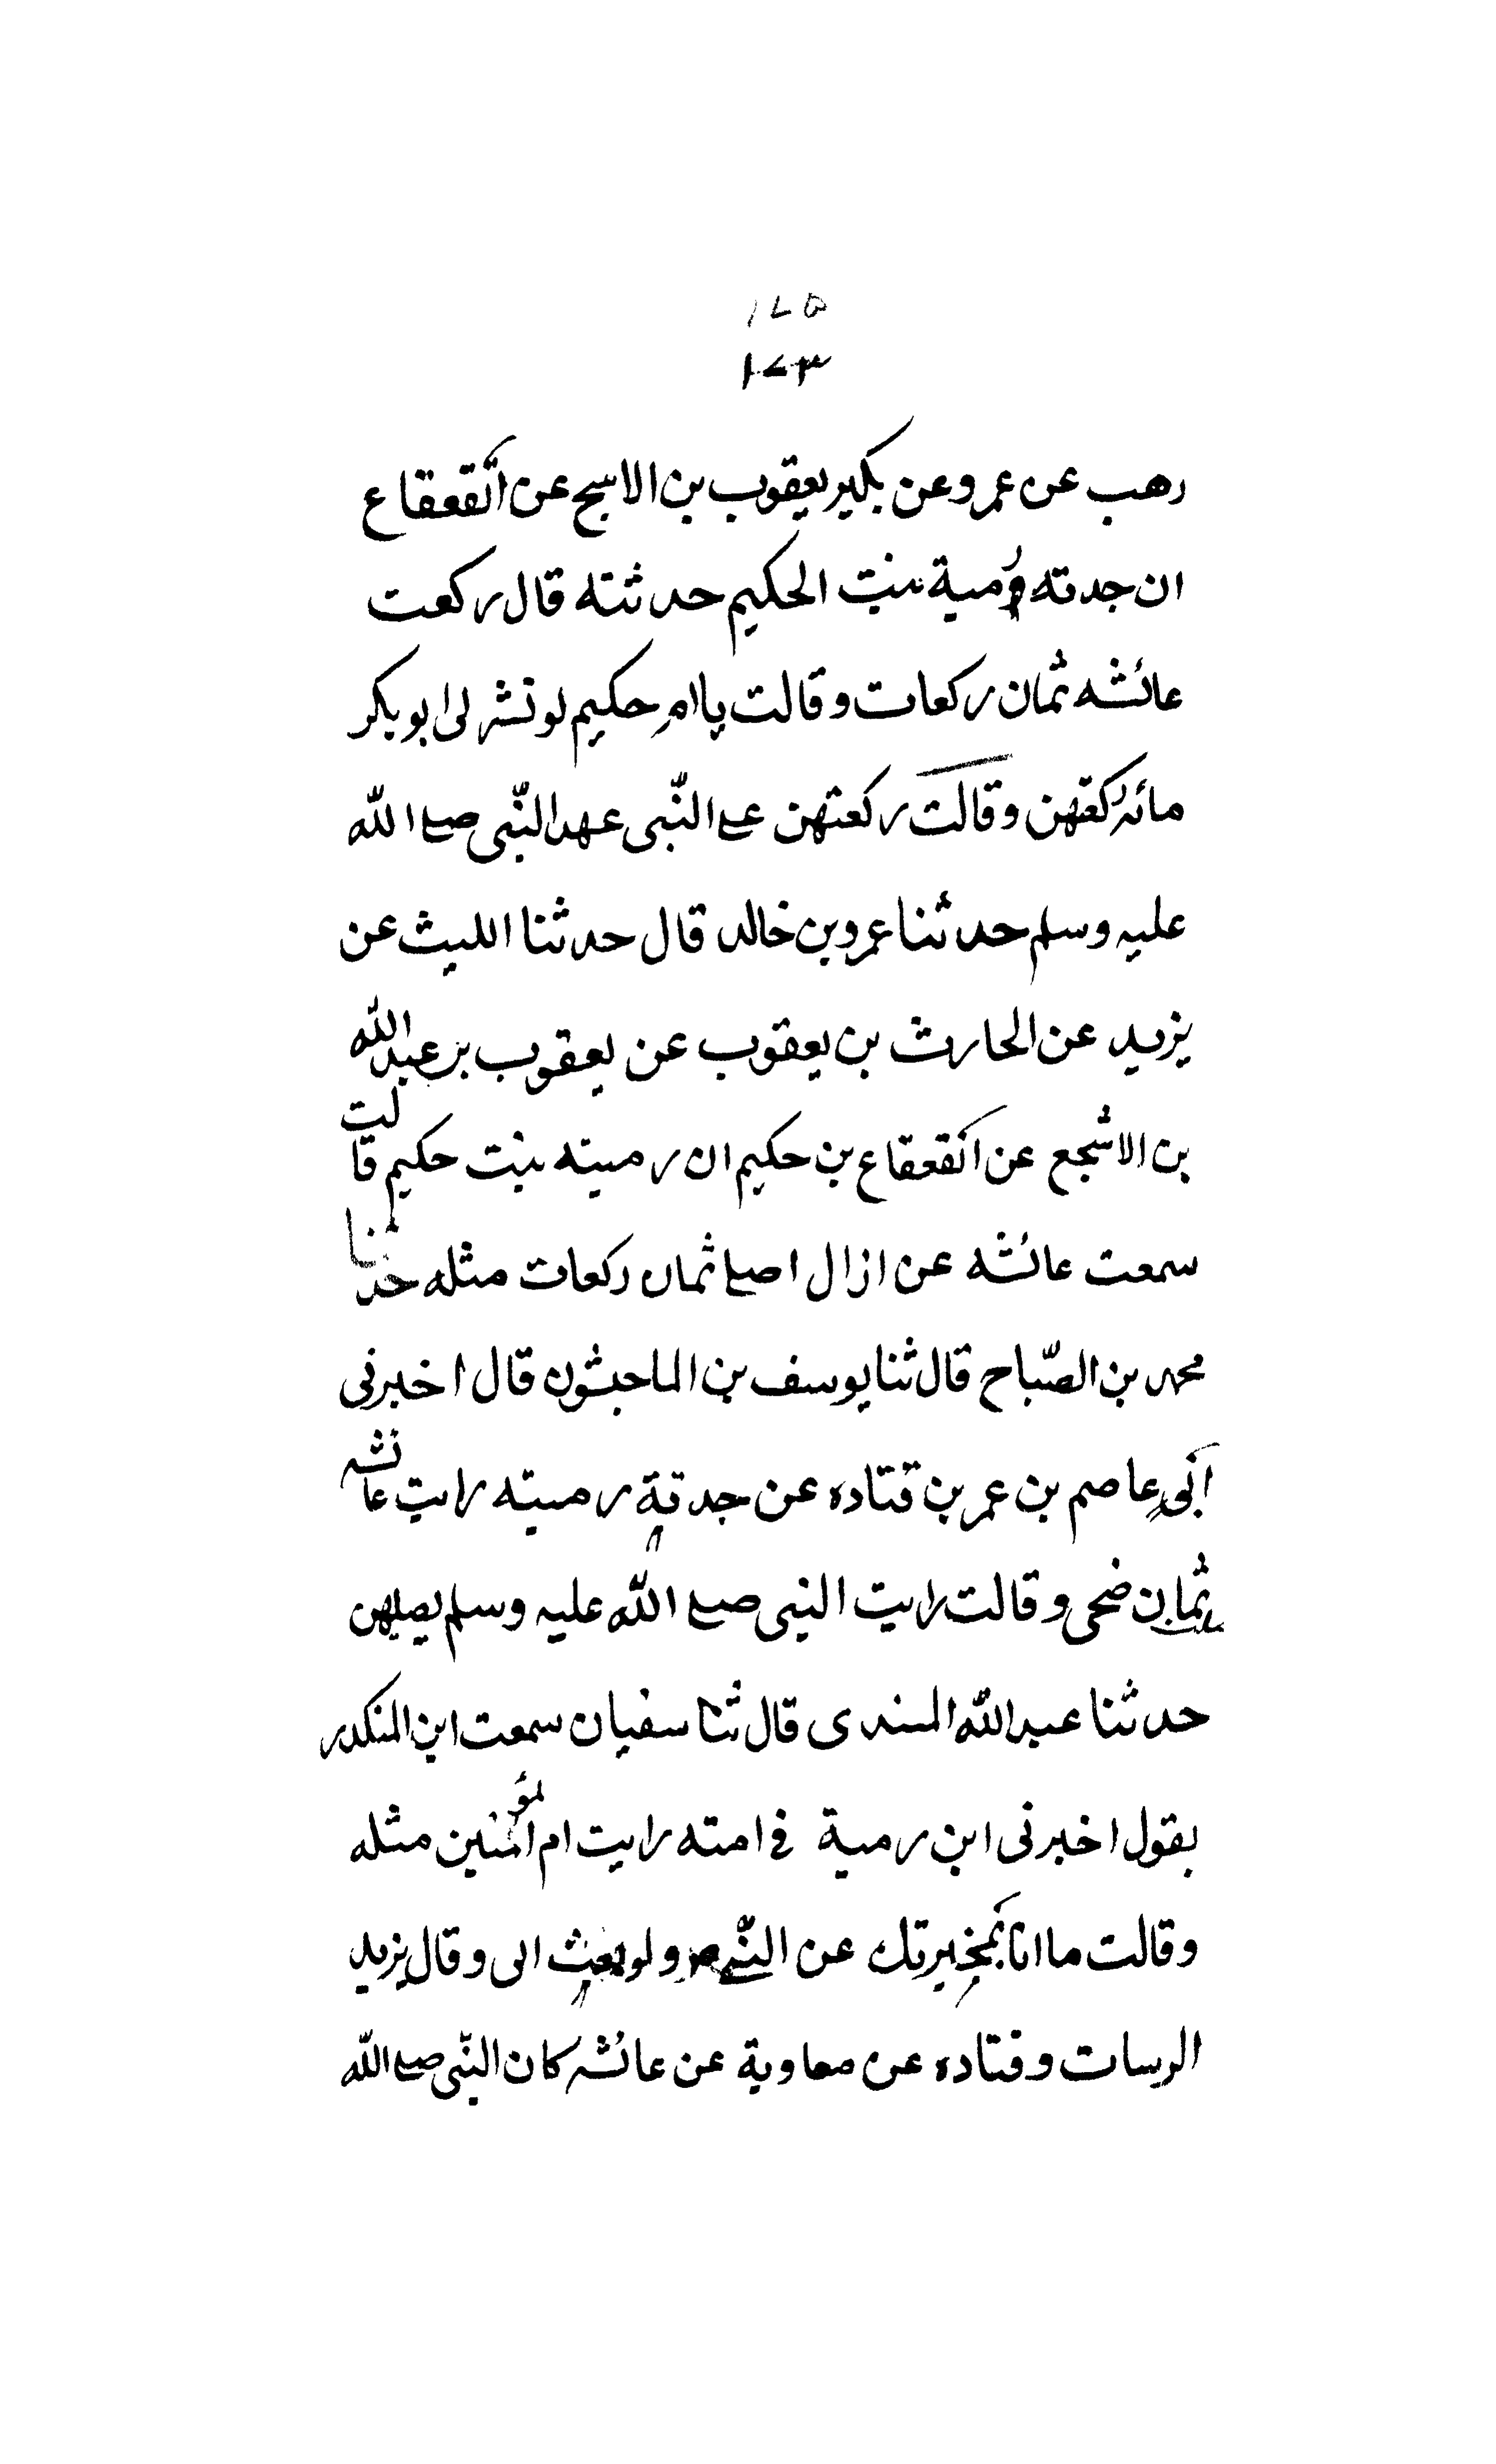 ١٧٥
١٧٣
رهب عن عمرو عن بكير يعقوب بن الاسبح عن القعقاع
ان جدته رمية بنت الحكيم حدثته قال ركعت
عائشه ثمان ركعات وقالت يا ام حكيم لو نشر لى ابو بكر
ركعتهن وقالت ركعتهن على النّبى عهد النّبى صلى الله
عليه وسلم حدثنا عمرو بن خالد قال حدثنا الليث عن
يزيد عن الحارث بن يعقوب عن يعقوب بن عبد الله
بن الاشجع عن القعقاع بن حكيم ان رميته بنت حكيم قالت
سمعت عائشه عن ازال اصلى ثمان ركعات مثله حدثنا
محمد بن الصّباح قال ثنا يوسف بن الماجشون قال اخبرنى
ابى عاصم بن عمر بن قتاده عن جدتة رميته رايت عائشه
ثمان ضحى وقالت رايت النبى صلى الله عليه وسلم يصليهن
حدثنا عبد الله المسندى قال ثنا سفيان سمعت ابن المنكدر
يقول اخبرنى ابن رمية فى امته رايت ام المؤمنين مثله
وقالت ما انا بمخبرتك عن النّبى ص ولو بعث الى وقال يزيد
الرسات وقتاده عن معاوية عن عائشه كان النّبى صلى الله